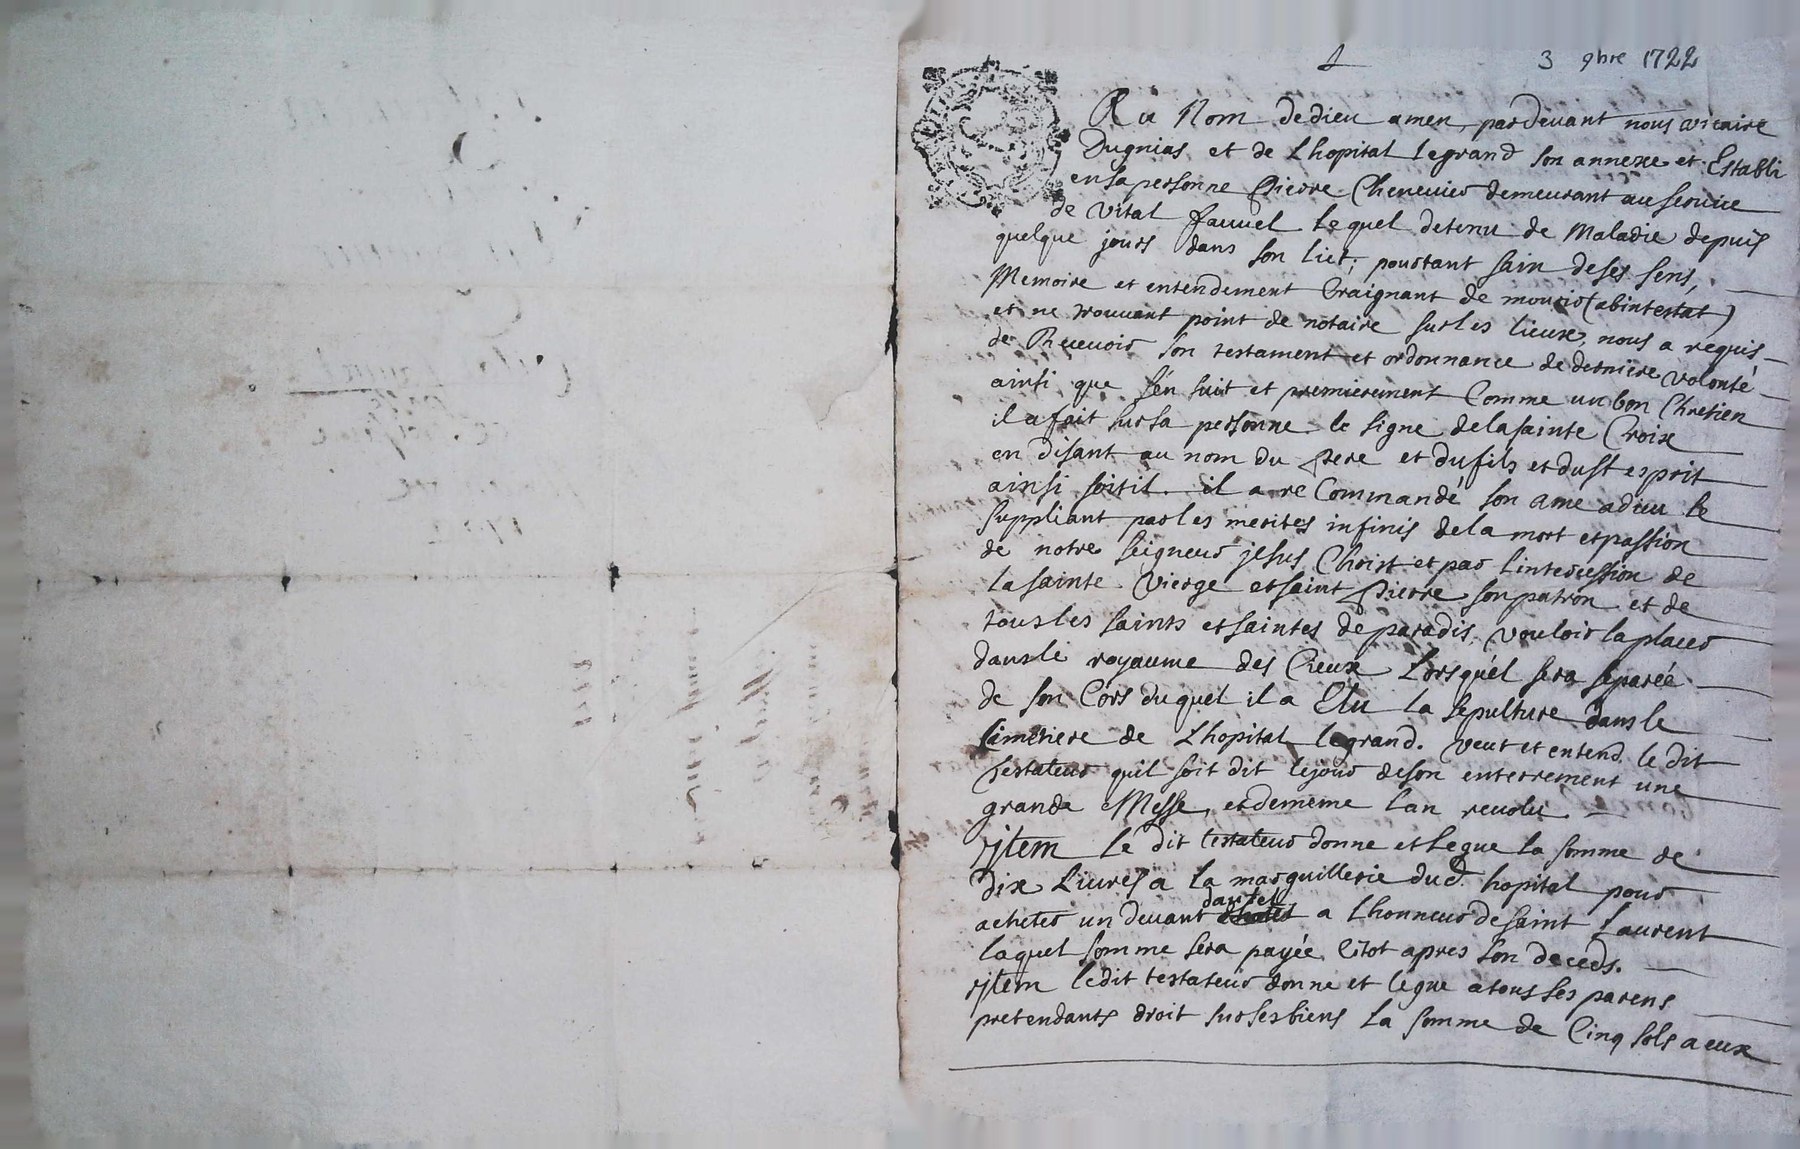 1
3 9bre 1722
Au Nom de dieu amen, pardevant nous vicaire
Dugnias et de Lhopital legrand son annexe et Establi
en sa personne Pierre Chenevier demeurant au service
de Vital fauvel lequel detenu de Maladie depuis
quelque jours dans son lict, pourtant sain de ses sens,
Memoire et entendement Craignant de mourir (abintestat)
et ne trouvant point de notaire sur les lieux, nous a requis
de Recevoir son testament et ordonnance de derniere volonté
ainsi que s'en suit et premierement Comme un bon Chretien
il a fait sur sa personne le signe de la sainte Croix
en disant au nom du Pere et du fils et du st esprit
ainsi soitil. il a reCommandé son ame a dieu le
suppliant par les merites infinis de la mort et passion
de notre seigneur jesus Christ et par lintercession de
la sainte Vierge et saint Pierre son patron et de
tous les saints et saintes de paradis, vouloir la placer
dans le royaume des Cieux Lorsquél sera séparéé
de son Cors duquel il a Elu la sepulture dans le
Cimetiere de Lhopital legrand. Veut et entend le dit
testateur quil soit dit le jour de son enterrement une
grande Messe, et dememe lan revolu
jtem Le dit testateur donne et legue la somme de
Dix Livres a la marguillerie dud. hopital pour
dautel
acheter un devant a Lhonneur de saint Laurent
laquel somme sera payée. Citot apres son deceds.
jtem ledit testateur donne et legue a tous ses parens
pretendants droit sur ses biens La somme de Cinq sols a eux